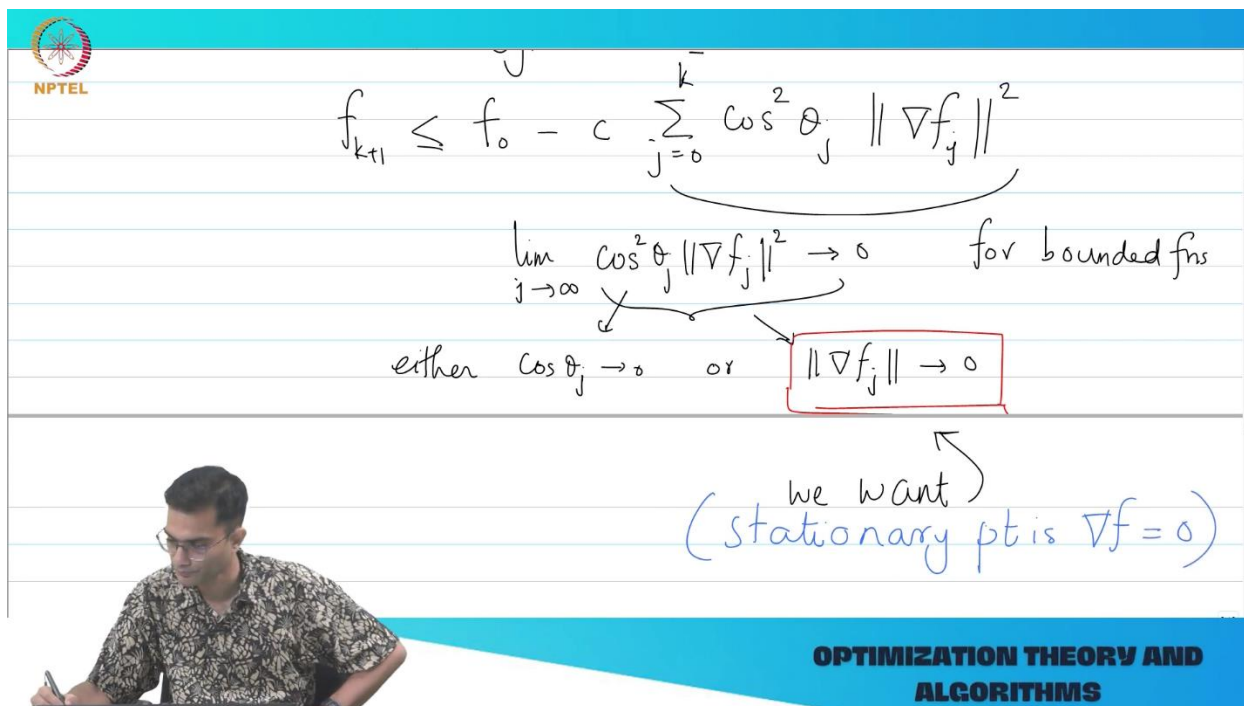 NPTEL
k
f_{k+1} ≤ f_0 - c Σ_{j=0} cos² θ_j ‖∇f_j‖²
lim_{j→∞} cos² θ_j ‖∇f_j‖² → 0 for bounded fns
either cos θ_j → 0 or ‖∇f_j‖ → 0
we want
(stationary pt is ∇f = 0)
OPTIMIZATION THEORY AND
ALGORITHMS